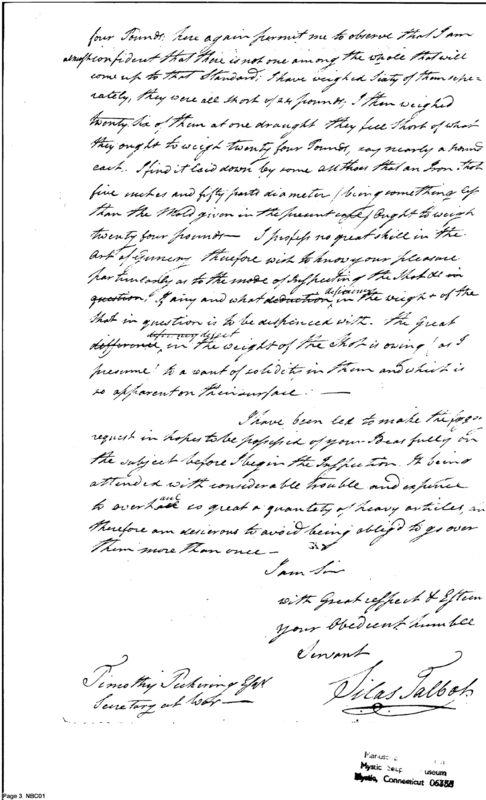 four Pounds: here again permit me to observe that I am
almost confident that there is not one among the whole that will
come up to that Standard; I have weighed Sixty of them sepe-
rately, they were all short of 24 pounds, I then weighed
twenty Six of them at one draught they fell short of what
they ought to weigh twenty four Pounds, say nearly a pound
each. I find it laid down by some authors that an Iron shot
five inches and fifty parts diameter / being something less
than the Mold given in the present case / Ought to weigh
twenty four pounds — I profess no great skill in the
Art of Gunnery therefore wish to know your pleasure
particularly as to the mode of Inspecting the Shot &c in
question? If any and what deduction deficiency in the weight of the
Shot in question is to be dispenced with. The Great
difference in the weight of the Shot is owing (as I
presume) to a want of solidity in them and which is
so apparent on their surface: —
I have been led to make the forego
request in hopes to be possessed of your Ideas fully on
the subject before I begin the Inspection. It being
attended with considerable trouble and expence
to overhaul so great a quantety of heavy articles, an
therefore am desirous to avoid being oblig'd to go over
them more than once —
I am Sir
with Great respect & Esteem
your Obedient humble
Servant
Silas Talbot
Timothy Pickering Esqr
Secretary at War —
Mystic Seap useum
Mystic, Connecticut 06355
Page 3 NBC01